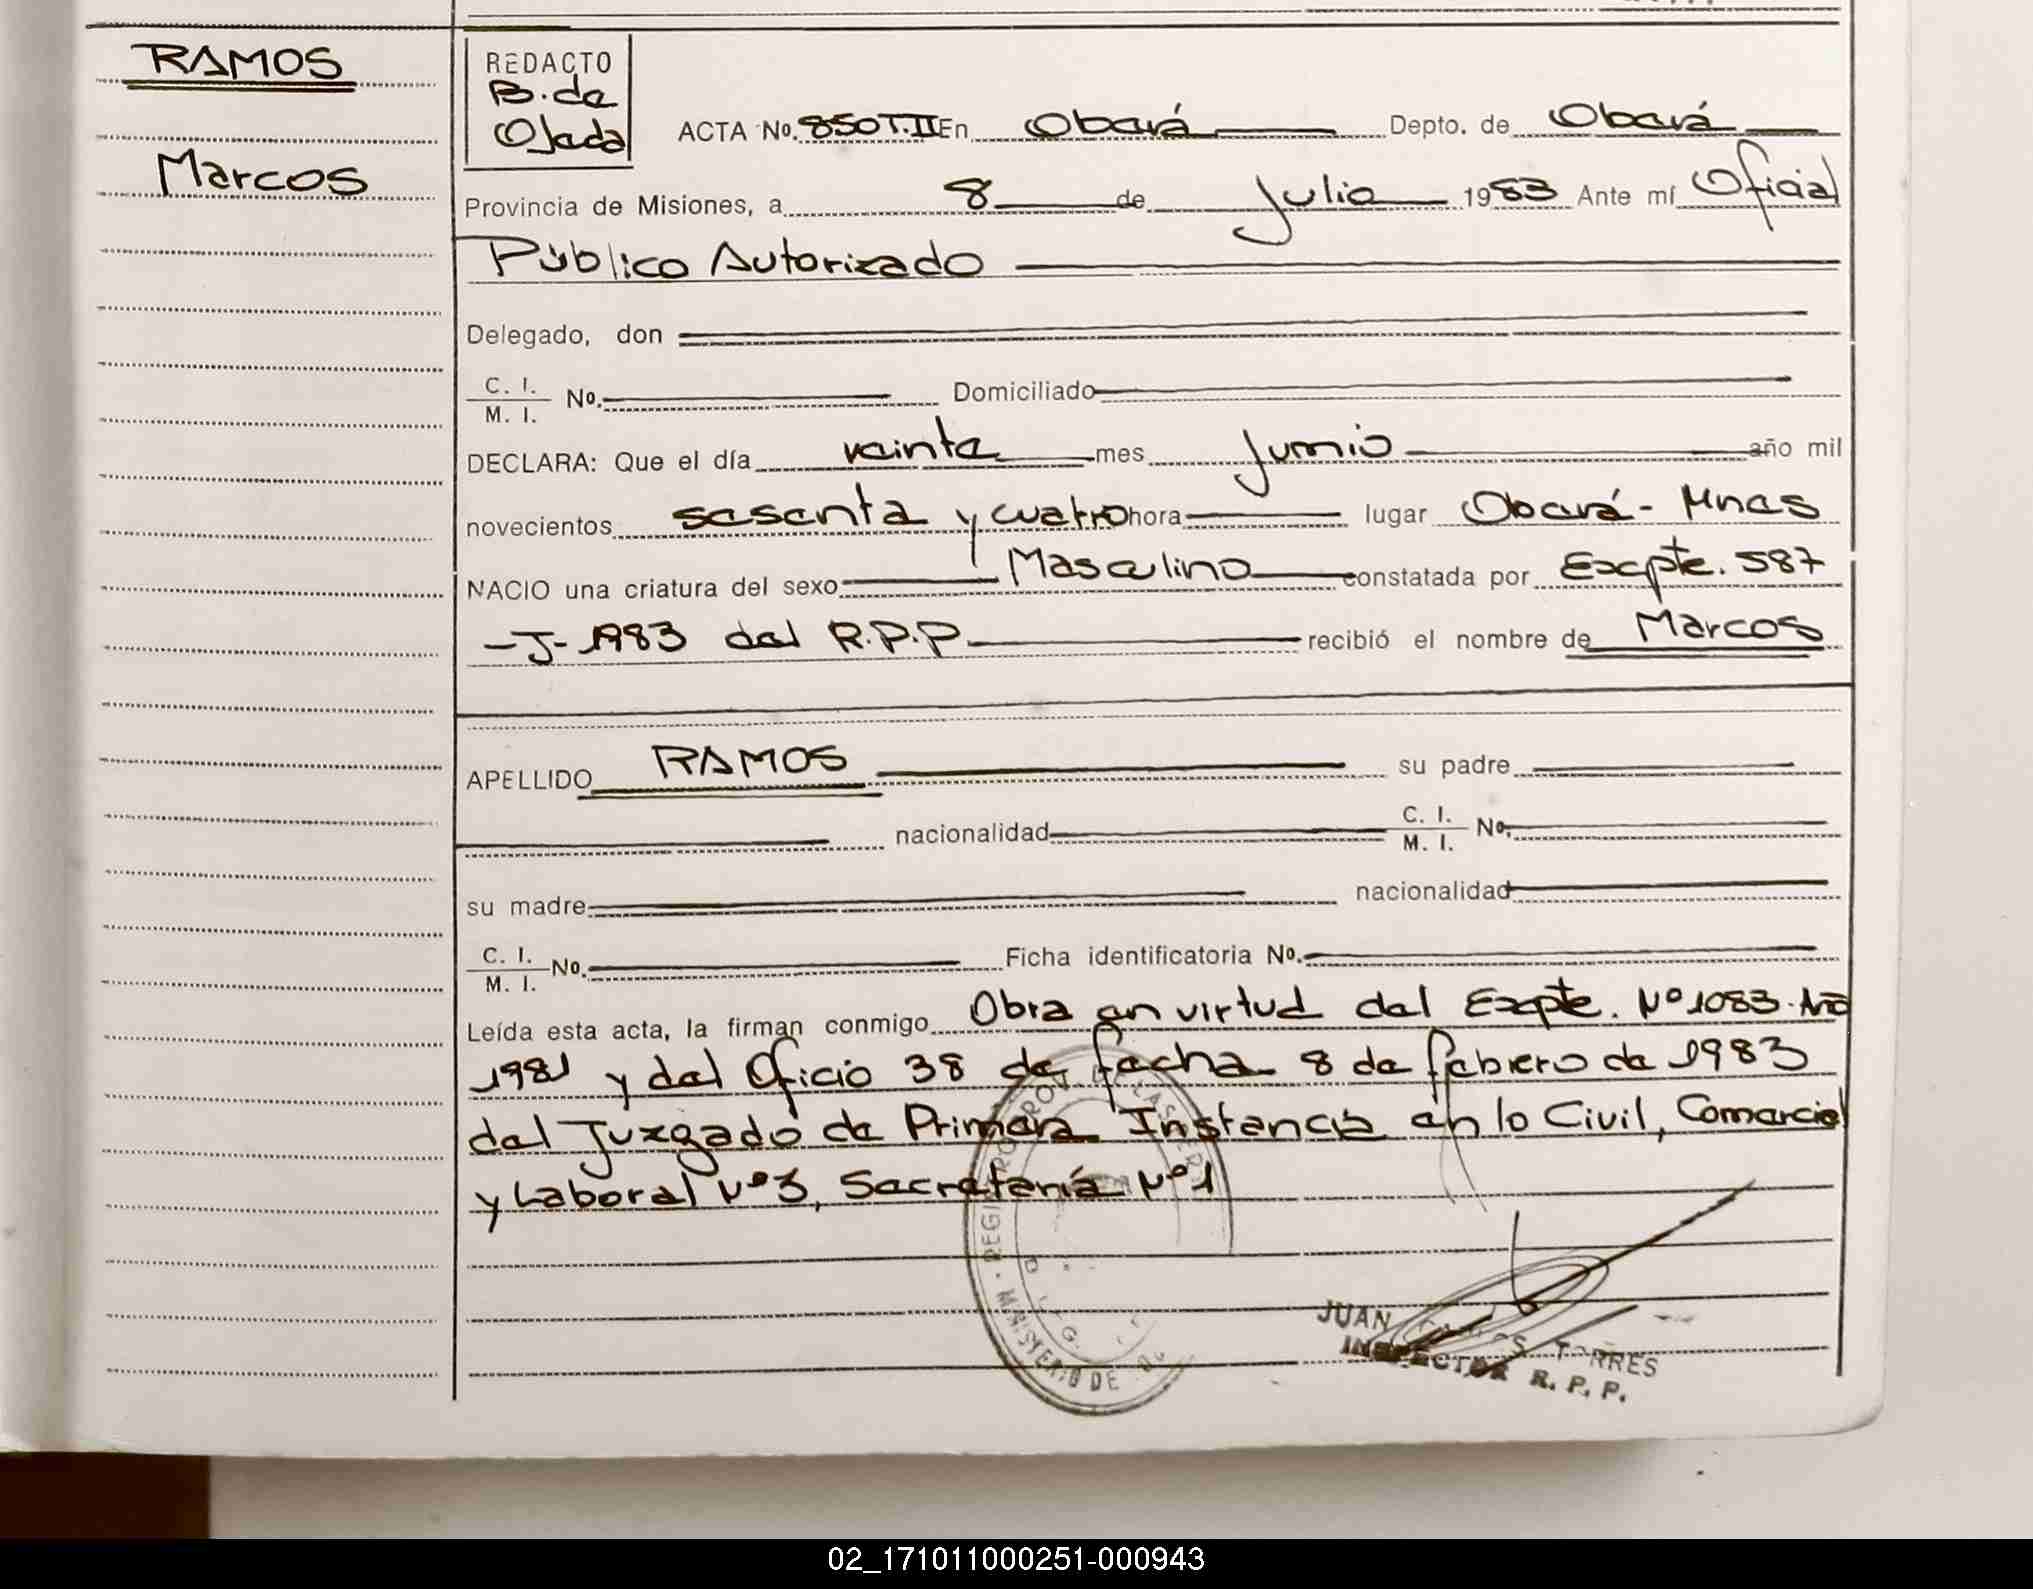 RAMOS
Marcos
REDACTO
B. de
Ojeda
ACTA No. 850 T.II En Oberá Depto. de Oberá
Provincia de Misiones, a 8 de Julio 1983 Ante mí Oficial
Público Autorizado
Delegado, don
C. I.
M. I. No. Domiciliado
DECLARA: Que el día veinte mes Junio año mil
novecientos sesenta y cuatro hora lugar Oberá - Mnes
NACIO una criatura del sexo Masculino constatada por Expte. 587
-J-1983 del R.P.P. recibió el nombre de Marcos
APELLIDO RAMOS su padre
nacionalidad C. I.
M. I. No.
su madre nacionalidad
C. I.
M. I. No. Ficha identificatoria No.
Leída esta acta, la firman conmigo Obra en virtud del Expte. Nº 1083. Año
1981 y del Oficio 38 de fecha 8 de febrero de 1983
del Juzgado de Primera Instancia en lo Civil, Comercial
y Laboral Nº 3, Secretaría Nº 1
JUAN CARLOS TORRES
INSPECTOR R. P. P.
02_171011000251-000943